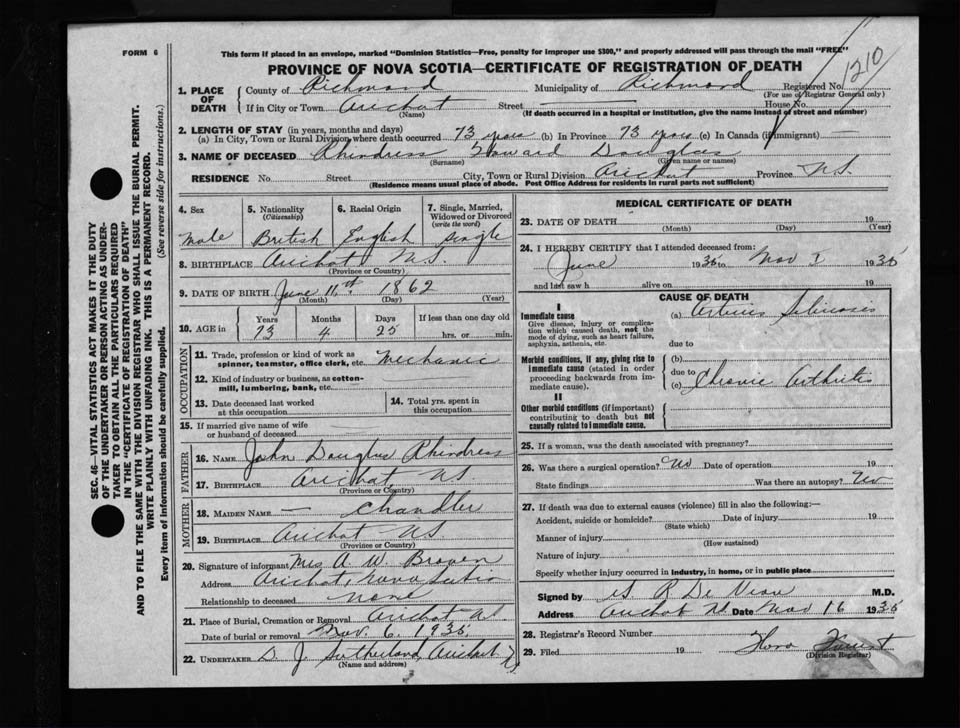 FORM 6
This form if placed in an envelope, marked "Dominion Statistics—Free, penalty for improper use $300," and properly addressed will pass through the mail "FREE"
1210
PROVINCE OF NOVA SCOTIA—CERTIFICATE OF REGISTRATION OF DEATH
1. PLACE OF DEATH
County of Richmond Municipality of Richmond Registered No.
(For use of Registrar General only)
If in City or Town Arichat Street House No.
(Name) (If death occurred in a hospital or institution, give the name instead of street and number)
2. LENGTH OF STAY (in years, months and days)
(a) In City, Town or Rural Division where death occurred 73 years (b) In Province 73 years (c) In Canada (if immigrant) —
3. NAME OF DECEASED Rhindress Howard Douglas
(Surname) (Given name or names)
RESIDENCE No. Street City, Town or Rural Division Arichat Province N.S.
(Residence means usual place of abode. Post Office Address for residents in rural parts not sufficient)
4. Sex Male
5. Nationality (Citizenship) British
6. Racial Origin English
7. Single, Married, Widowed or Divorced (write the word) Single
8. BIRTHPLACE Arichat N.S.
(Province or Country)
9. DATE OF BIRTH June 11th 1862
(Month) (Day) (Year)
10. AGE in Years Months Days If less than one day old
73 4 25 hrs. or min.
OCCUPATION
11. Trade, profession or kind of work as spinner, teamster, office clerk, etc. Mechanic
12. Kind of industry or business, as cotton-mill, lumbering, bank, etc.
13. Date deceased last worked at this occupation
14. Total yrs. spent in this occupation
15. If married give name of wife or husband of deceased
FATHER
16. NAME John Douglas Rhindress
17. BIRTHPLACE Arichat, N.S.
(Province or Country)
MOTHER
18. MAIDEN NAME — Chandler
19. BIRTHPLACE Arichat N.S.
(Province or Country)
20. Signature of informant Mrs A. W. Brown
Address Arichat, Nova Scotia
Relationship to deceased none
21. Place of Burial, Cremation or Removal Arichat N.S.
Date of burial or removal Nov. 6. 1935
22. UNDERTAKER D. J. Sutherland, Arichat
(Name and address)
MEDICAL CERTIFICATE OF DEATH
23. DATE OF DEATH 19
(Month) (Day) (Year)
24. I HEREBY CERTIFY that I attended deceased from:
June 1935 to Nov 1935
and last saw h alive on 19
CAUSE OF DEATH
I
Immediate cause
Give disease, injury or complication which caused death, not the mode of dying, such as heart failure, asphyxia, asthenia, etc.
(a)
due to
Morbid conditions, if any, giving rise to immediate cause (stated in order proceeding backwards from immediate cause).
(b)
due to
(c) Chronic Arthritis
II
Other morbid conditions (if important) contributing to death but not causally related to immediate cause.
25. If a woman, was the death associated with pregnancy?
26. Was there a surgical operation? No Date of operation 19
State findings Was there an autopsy? No
27. If death was due to external causes (violence) fill in also the following:—
Accident, suicide or homicide? Date of injury 19
(State which)
Manner of injury
(How sustained)
Nature of injury
Specify whether injury occurred in industry, in home, or in public place
Signed by M.D.
Address Arichat Date Nov 16 1935
28. Registrar's Record Number
29. Filed 19
(Division Registrar)
SEC. 46—VITAL STATISTICS ACT MAKES IT THE DUTY
OF THE UNDERTAKER OR PERSON ACTING AS UNDER-
TAKER TO OBTAIN ALL THE PARTICULARS REQUIRED
IN THE "CERTIFICATE OF REGISTRATION OF DEATH"
AND TO FILE THE SAME WITH THE DIVISION REGISTRAR WHO SHALL ISSUE THE BURIAL PERMIT.
WRITE PLAINLY WITH UNFADING INK. THIS IS A PERMANENT RECORD.
Every item of information should be carefully supplied. (See reverse side for instructions.)